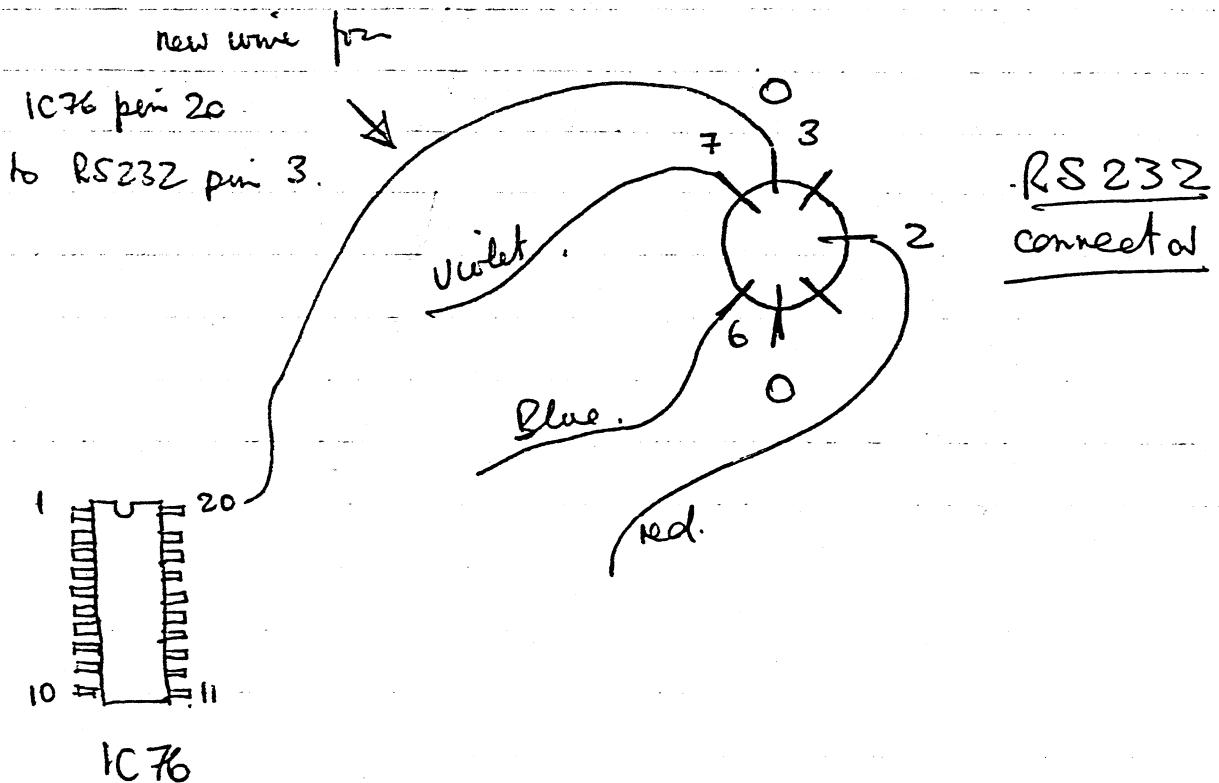 new wire from
IC76 pin 20
to RS232 pin 3.
O
7 3
RS232
connector
2
Violet.
6
O
Blue.
red.
1 20
10 11
IC76